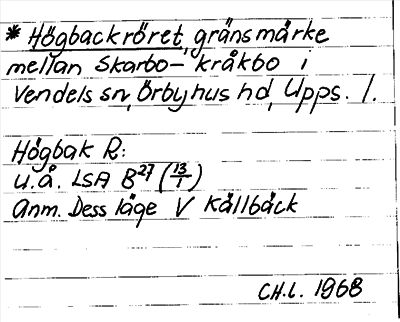 * Högbackröret, gränsmärke
mellan Skarbo- kråkbo i
Vendels sn, Örbyhus hd, Upps. l.
Högbak R:
u.å. LSA B27 (13/1)
Anm. Dess läge V Källbäck
CH.L. 1968